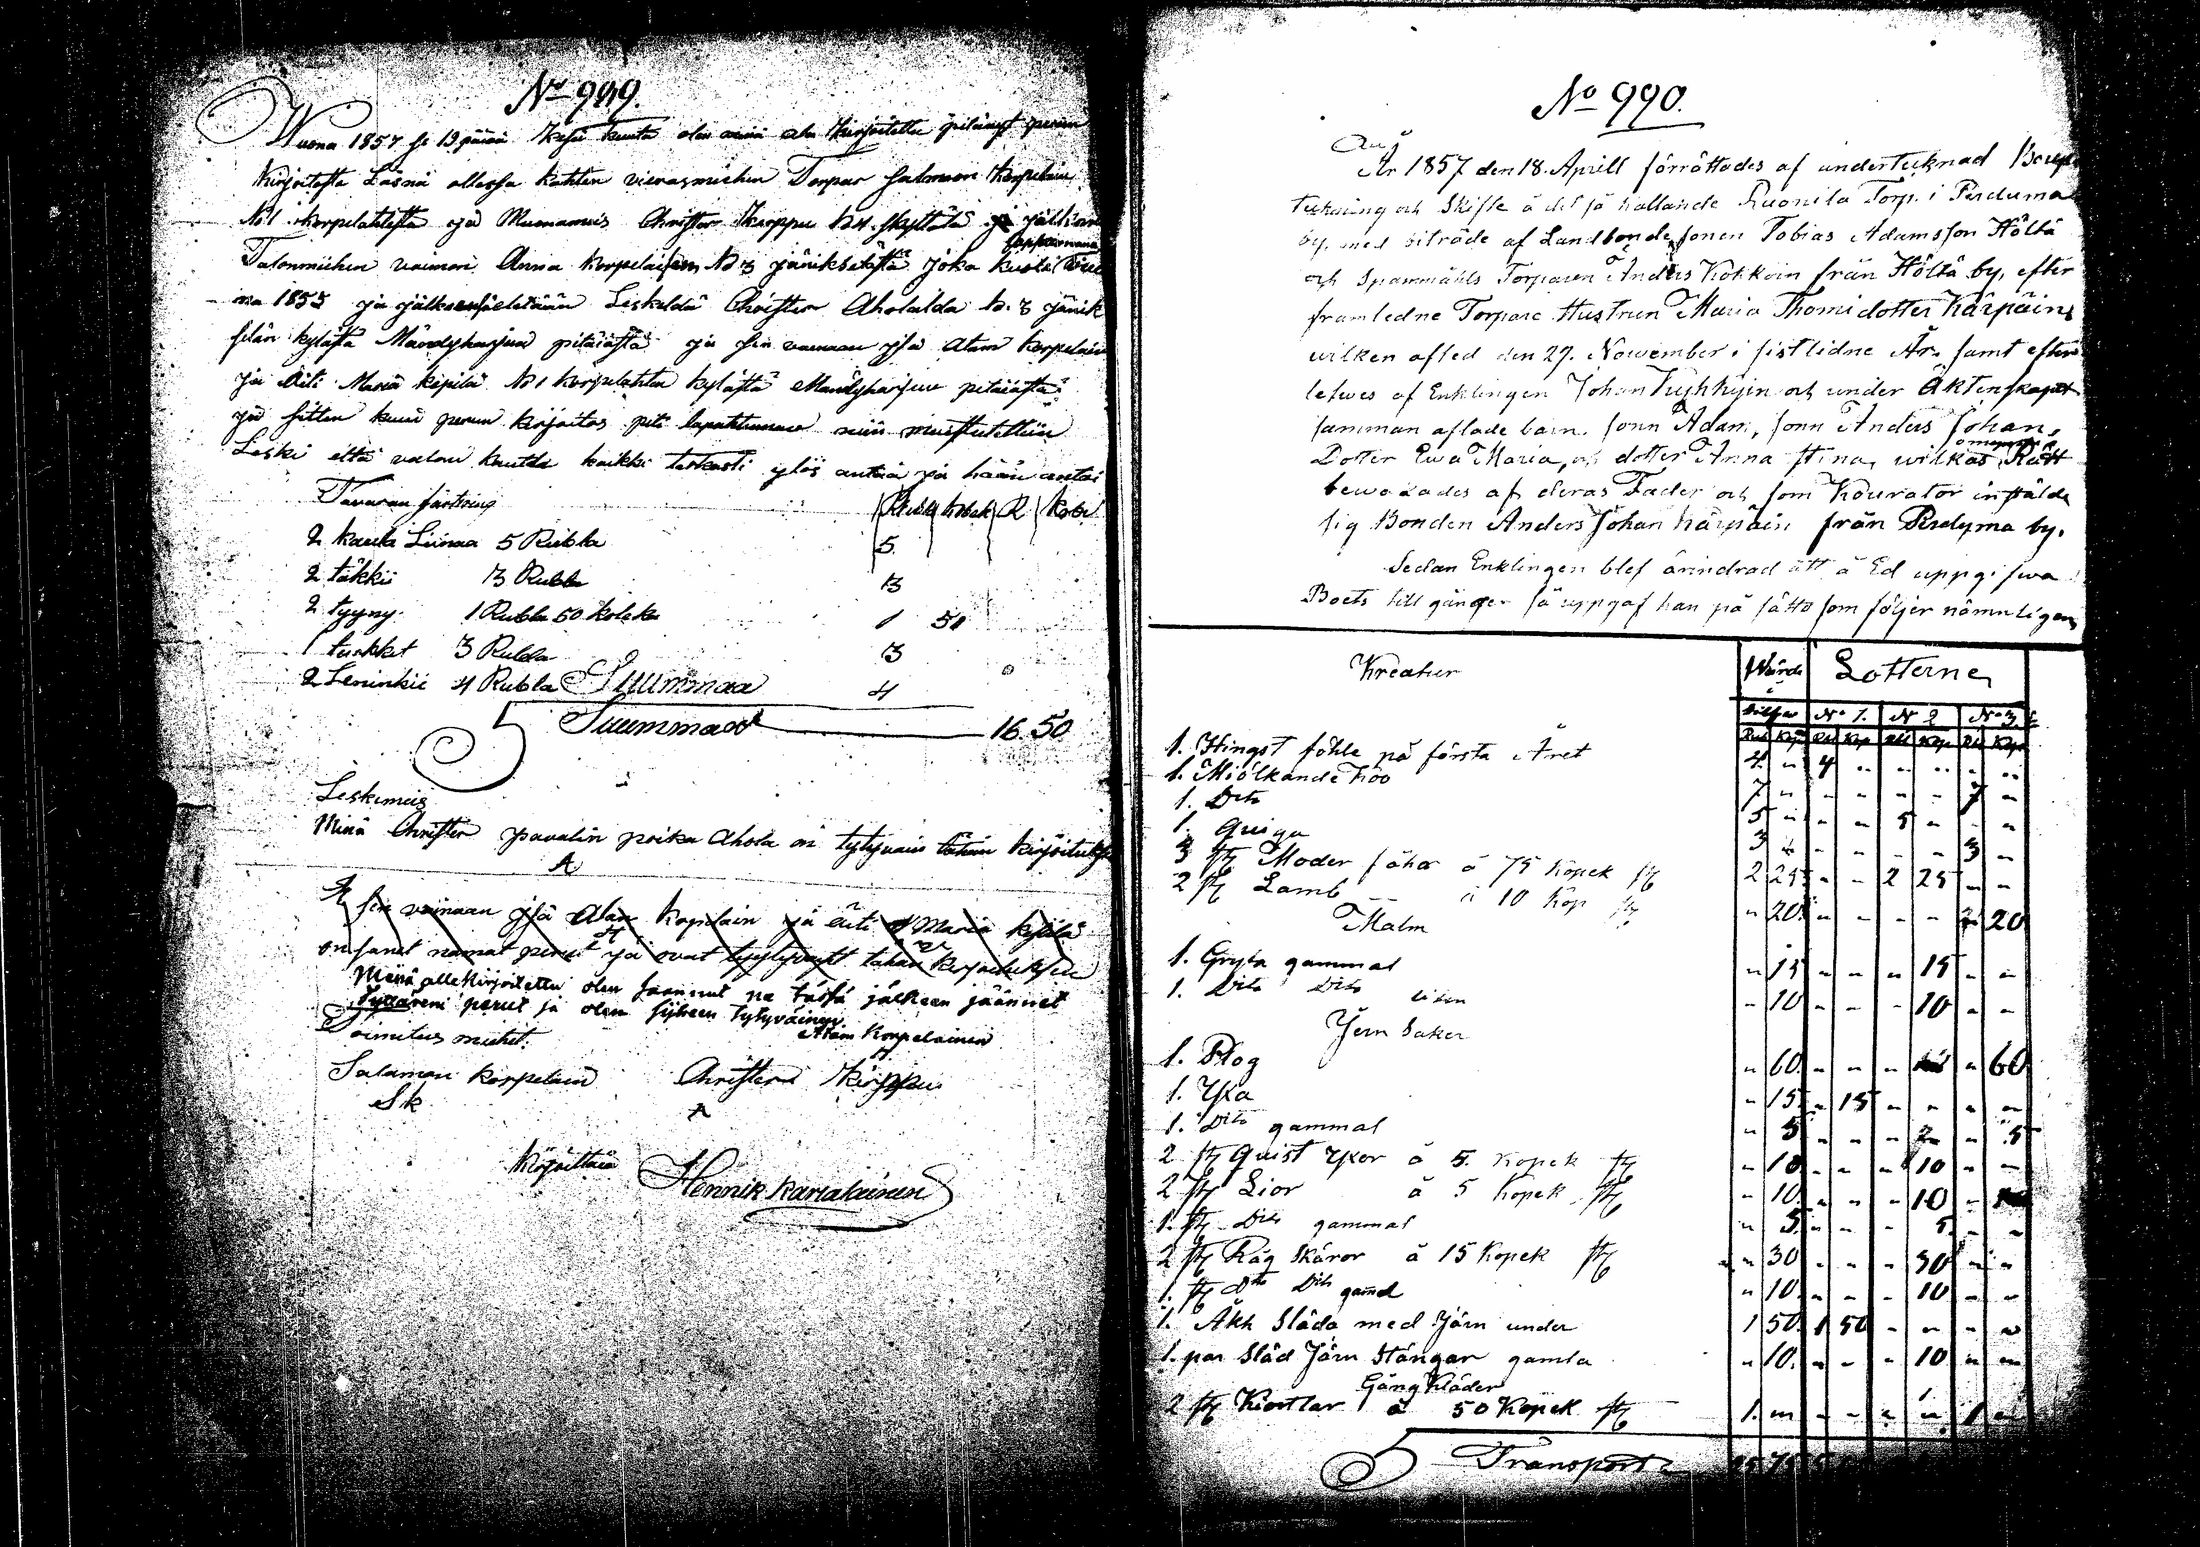 No 949.
Wuona 1857 se 19 päivä Kesä kuuta olen minä ala Kirjoitettu pitänyt perun
Kirjoitosta Läsnä ollessa kahten vierasmiehen Torpar Salmoon Korpelain
No 1 Korpelahtesta ja Mumamies Christer Kirppu No 4 skyttälä ja jälkeen
Talonmiehen vaimon Anna Korpelaisen No 3 jäniksälästä joka kuoli
na 1853 ja jälkeensä Leskeldä Christer Aholalda No. 3 jänik
selän kylästä Mändyharjun pitäiästä ja sen vainaan jsä Atam Korpelain
ja Äiti Maria kipilä No 1 korpelahten kylästä Mändyharjun pitäiästä
ja sitten kuin perun kirjoitos piti tapahtuman niin muistutettiin
Leski että valan kautta kaikki tarkasti ylös antaa ja hään antoi
Tavaran
Rubl kobek R kobe
2 kaula Liinaa 5 Rubla 5
2 täkkii 3 Rubla 3
2 tyyny 1 Rubla 50 kobeka 1 50
1 turkket 3 Rubla 3
2 Leninkii 4 Rubla Suummaa 4
Suummaa 16. 50
Leskimeis
Minä Christer pavalin poika Ahola on tytyvain tähän kirjoituksen
A
sen vainaan jsä Atam Korpelain ja äiti Maria kipilä
on sanet namat perut ja ovat tytyvaiset tähän kirjoituksen
Minä allekirjoitettu olen saannut ne tästä jälkeen jäännet
Tyttäreni perut ja olen siihen tytyväinen
Atam Korpelainen
Toimitus miehet.
Salamon Korpelain Christer Kirppu
SK A
Kirjoittaia Hennik Karialainen
No 990.
År 1857 den 18. Aprill förrättades af undertecknad Bouppteckning
teckning och Skifte å det så kallande Ruonila Torp. i Perduma
by. med biträde af Landbonde sonen Tobias Adamsson Höltä
och Spannmåhls Torparen Anders Kokkoin från Höltä by, efter
framledne Torpare Hustrun Maria Thomidotter Kärpäin,
wilken afled den 27. Nowember i sistlidne År. samt efter
lefwes af Enklingen Johan Tuhkyin och under Äktenskapet
samman aflade barn. sonn Adam, sonn Anders Johan,
Dotter Ewa Maria, och dotter Anna Stina, wilkas omyndiga Rätt
bewakades af deras Fader och som Kourator instälde
sig Bonden Anders Johan Kärpäin från Perdyma by.
Sedan Enklingen blef ärindrad att å Ed uppgifwa
Boets till gånger så uppgaf han på sätt som följer nämnligen
Kreatur Wärde Lotterne
Silfwer No 1. No 2 No 3
Rub Kop Rbl Kop Rbl Kop Rbl Kop
1. Hingst föhle på första Året 4. " 4 " " " " "
1. Miölkande Koo 7 " " " " " 7 "
1. Dito 5 " " " 5 " " "
1. Quiga 3 " " " " " 3 "
3 st Moder fåhar á 75 Kopek st 2 25 " " 2 25 " "
2 st Lamb á 10 Kop st " 20 " " " " " 20
Malm
1. Gryta gammal " 15 " " " 15 " "
1. Dito Dito liten " 10 " " " 10 " "
Jern Saker
1. Plog " 60 " " " " " 60
1. Yxa " 15 " 15 " " " "
1. Dito gammal " 5 " " " " " 5
2 st Quist Yxor á 5. Kopek st " 10 " " " 10 " "
2 st Lior á 5 Kopek st " 10 " " " 10 "
1. st Dito gammal " 5. " " " 5. " "
2 st Råg Skäror á 15 Kopek st " 30 " " " 30 " "
1. st Dto Dito gamal " 10 " " " 10 " "
1. Åkk Släda med Järn under 1 50 1 50 " " " "
1. par Släd Järn Stångar gamla " 10. " " " 10 " "
Gång Kläder
2 st Kiortlar á 50 Kopek st 1. " " " " " 1 "
Transport